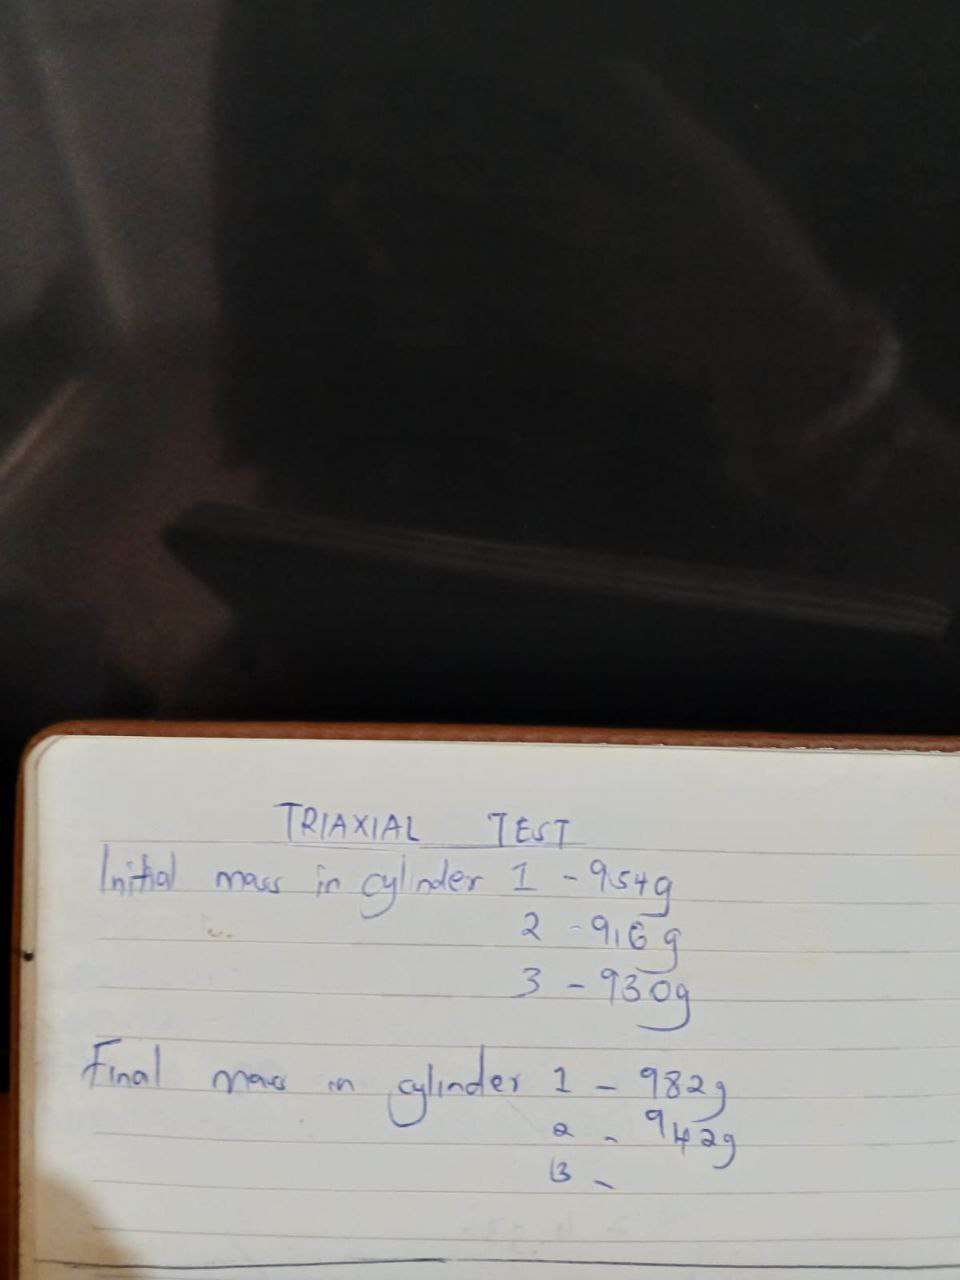 TRIAXIAL TEST
Initial mass in cylinder 1 - 954g
2 - 916g
3 - 930g
Final mass in cylinder 1 - 982g
2 - 942g
3 -